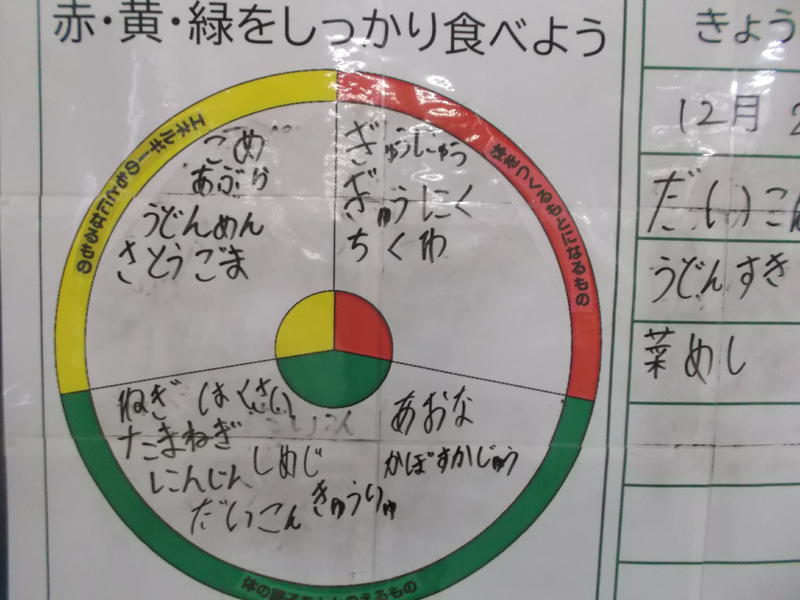 赤・黄・緑をしっかり食べよう
エネルギーのもとになるもの
こめ
あぶら
うどんめん
さとう ごま
体をつくるもとになるもの
ぎゅうにゅう
ぎゅうにく
ちくわ
ねぎ はくさい
たまねぎ
にんじん しめじ
だいこん きゅうりゅ
あおな
かぼすかじゅう
体の調子をととのえるもの
きょう
12月 2
だいこん
うどんすき
菜めし